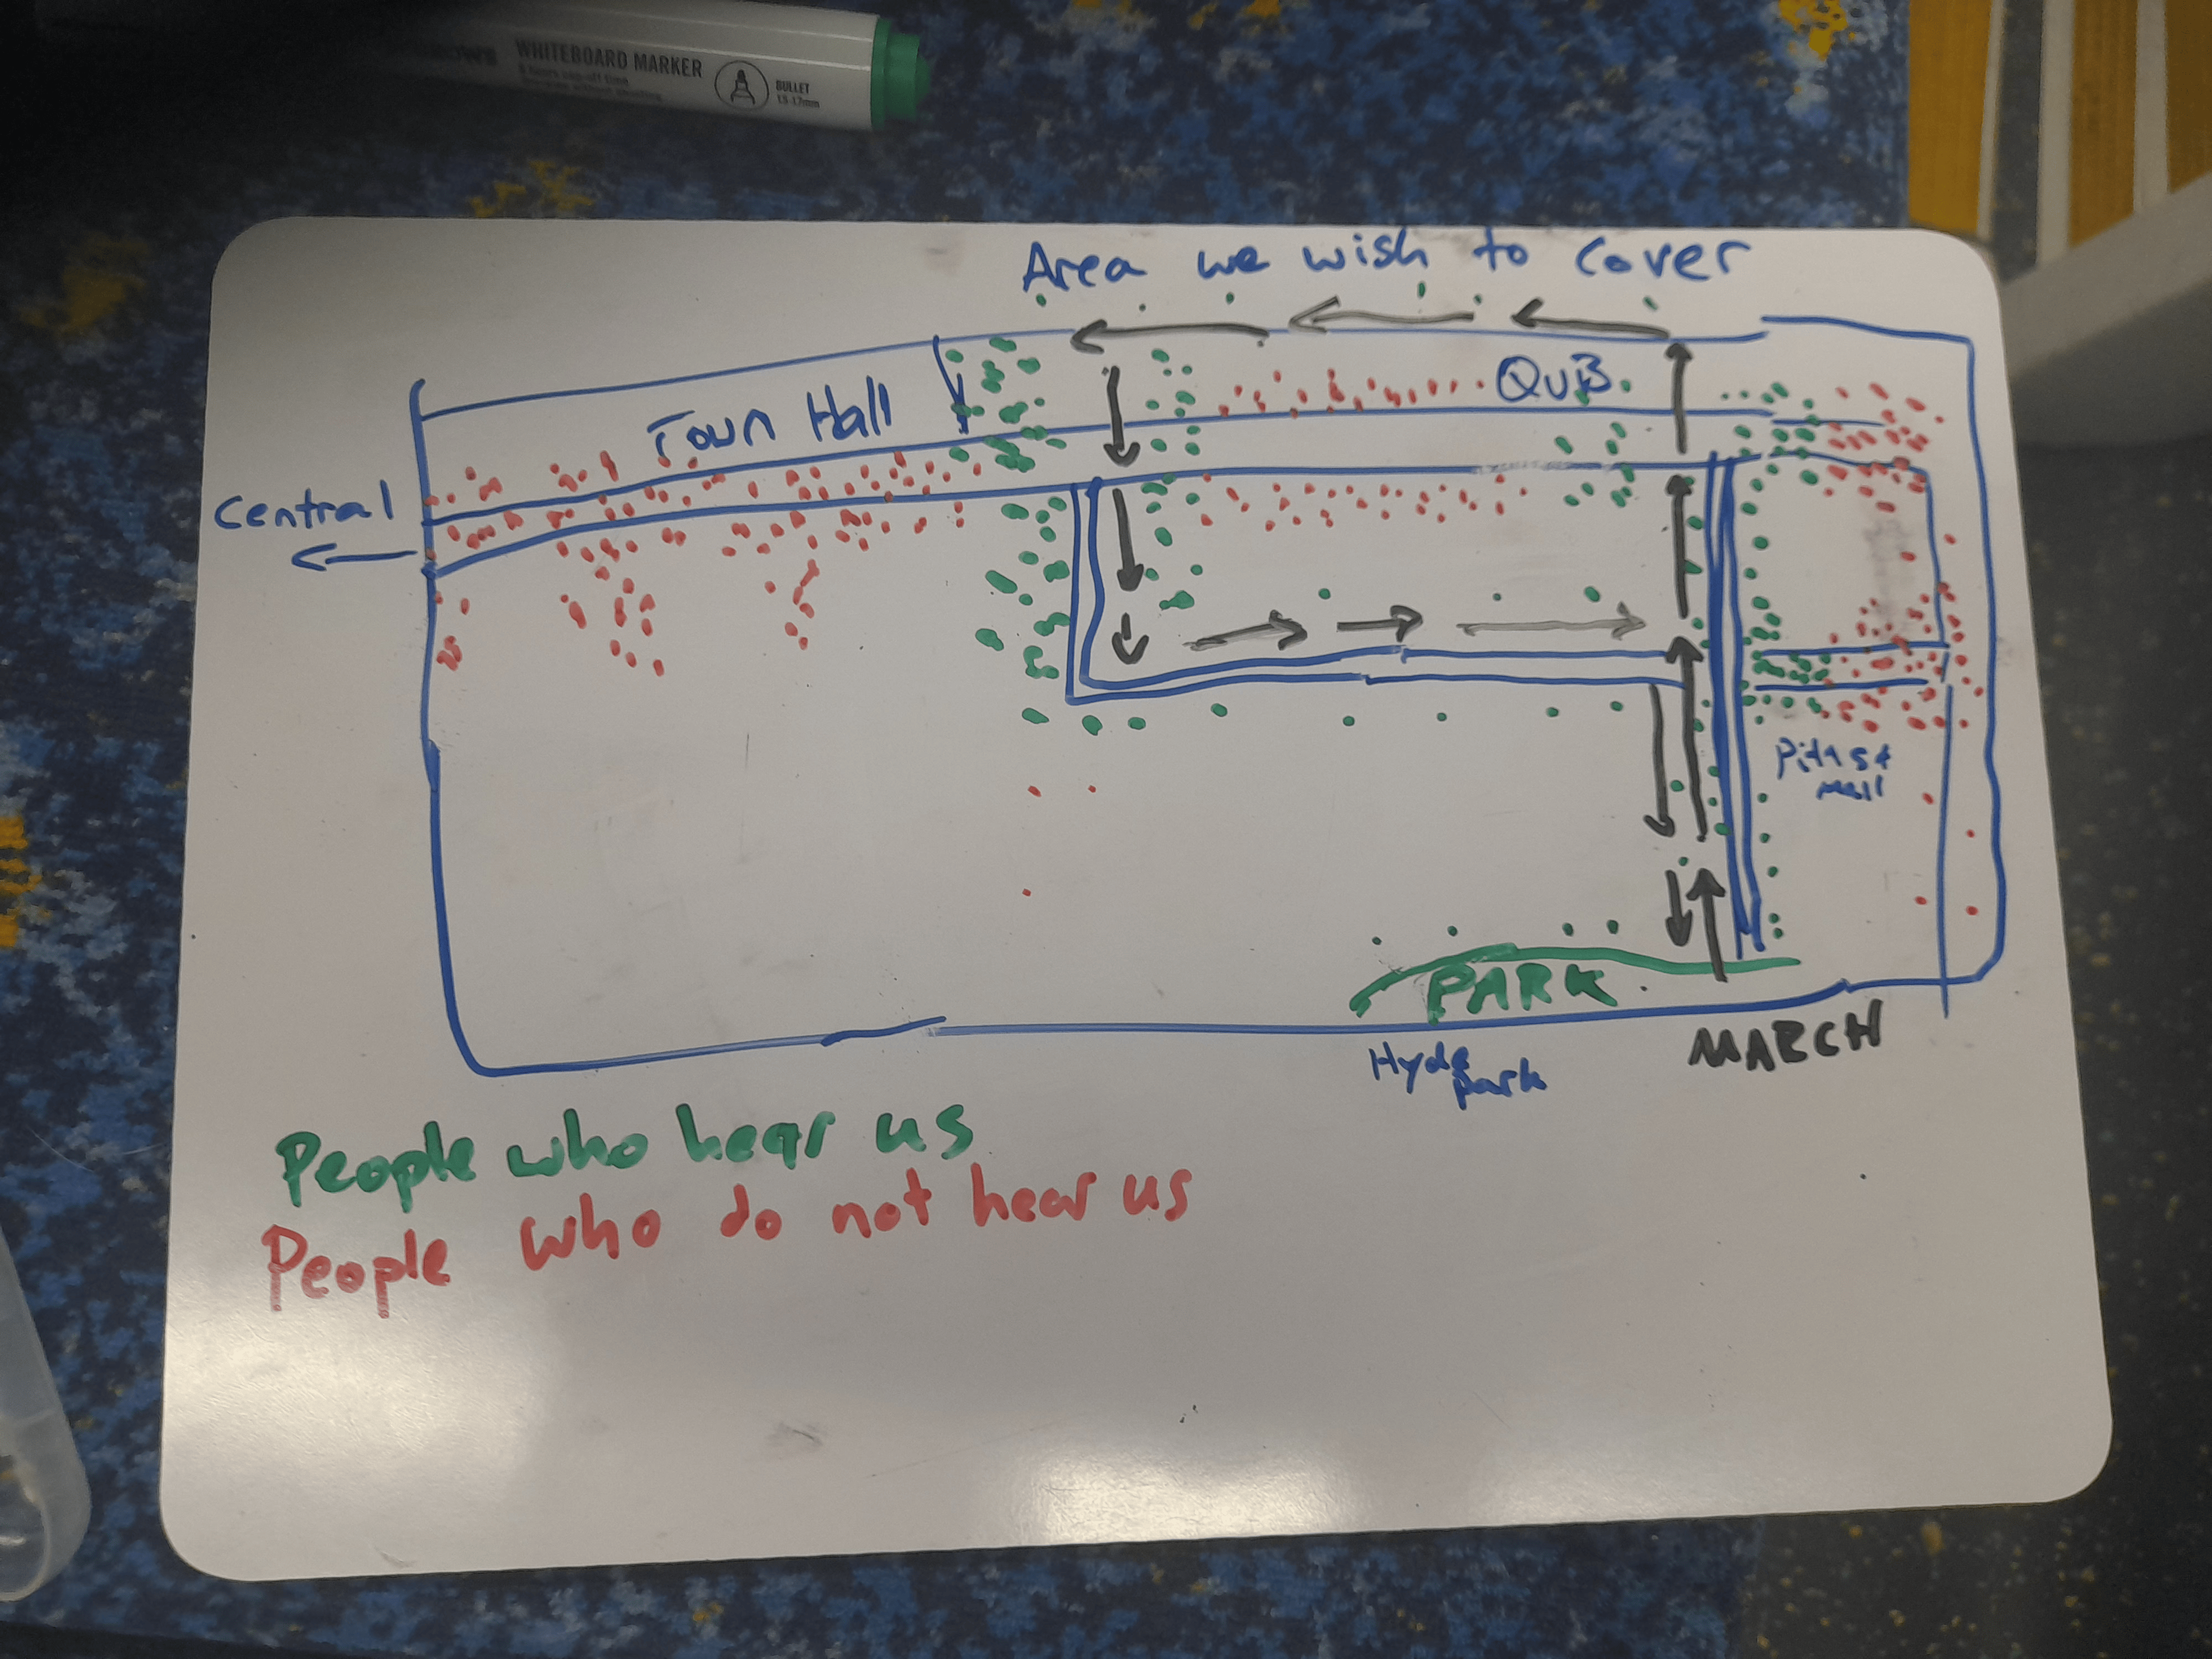 WHITEBOARD MARKER
BULLET
1.5-17mm
Area we wish to cover
QVB
Town Hall
Central
Pitt st
mall
PARK
MARCH
Hyde
park
People who hear us
People who do not hear us